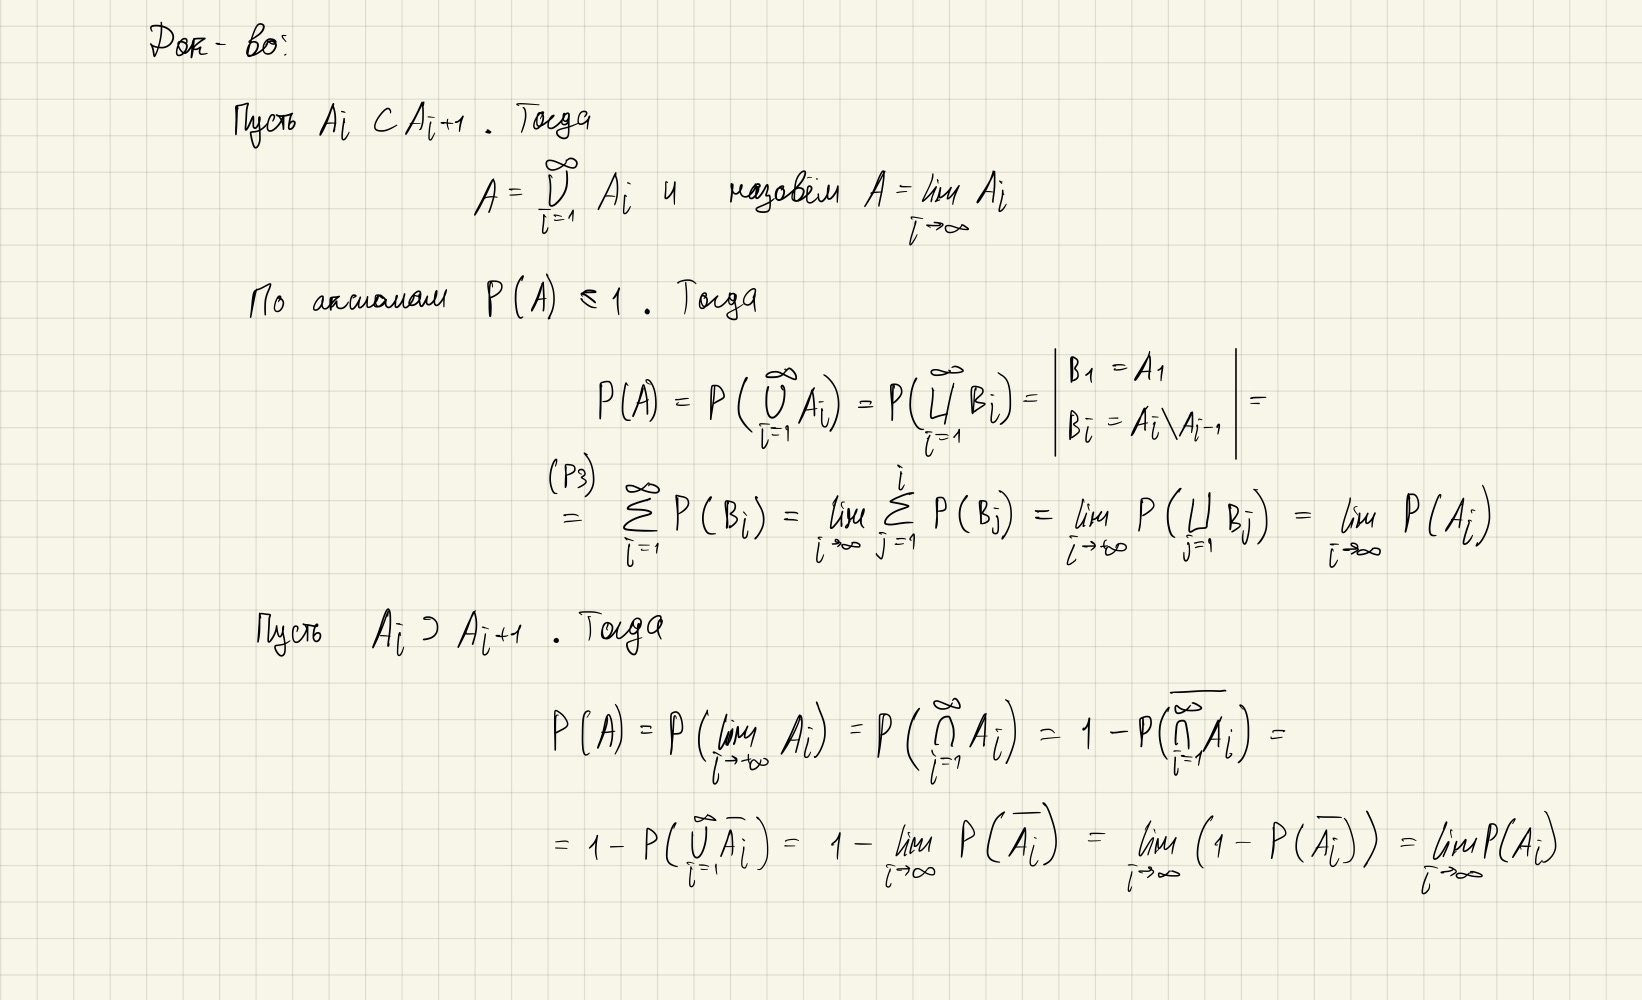 Док-во:
Пусть A_i ⊂ A_{i+1}. Тогда
A = ⋃_{i=1}^{∞} A_i и назовём A = lim_{i→∞} A_i
По аксиомам P(A) ≤ 1. Тогда
P(A) = P(⋃_{i=1}^{∞} A_i) = P(⊔_{i=1}^{∞} B_i) = | B_1 = A_1 ; B_i = A_i \ A_{i-1} | =
(P3) = ∑_{i=1}^{∞} P(B_i) = lim_{i→∞} ∑_{j=1}^{i} P(B_j) = lim_{i→+∞} P(⊔_{j=1} B_j) = lim_{i→∞} P(A_i)
Пусть A_i ⊃ A_{i+1}. Тогда
P(A) = P(lim_{i→+∞} A_i) = P(⋂_{i=1}^{∞} A_i) = 1 - P(\overline{⋂_{i=1}^{∞} A_i}) =
= 1 - P(⋃_{i=1}^{∞} \overline{A_i}) = 1 - lim_{i→∞} P(\overline{A_i}) = lim_{i→∞} (1 - P(\overline{A_i})) = lim_{i→∞} P(A_i)